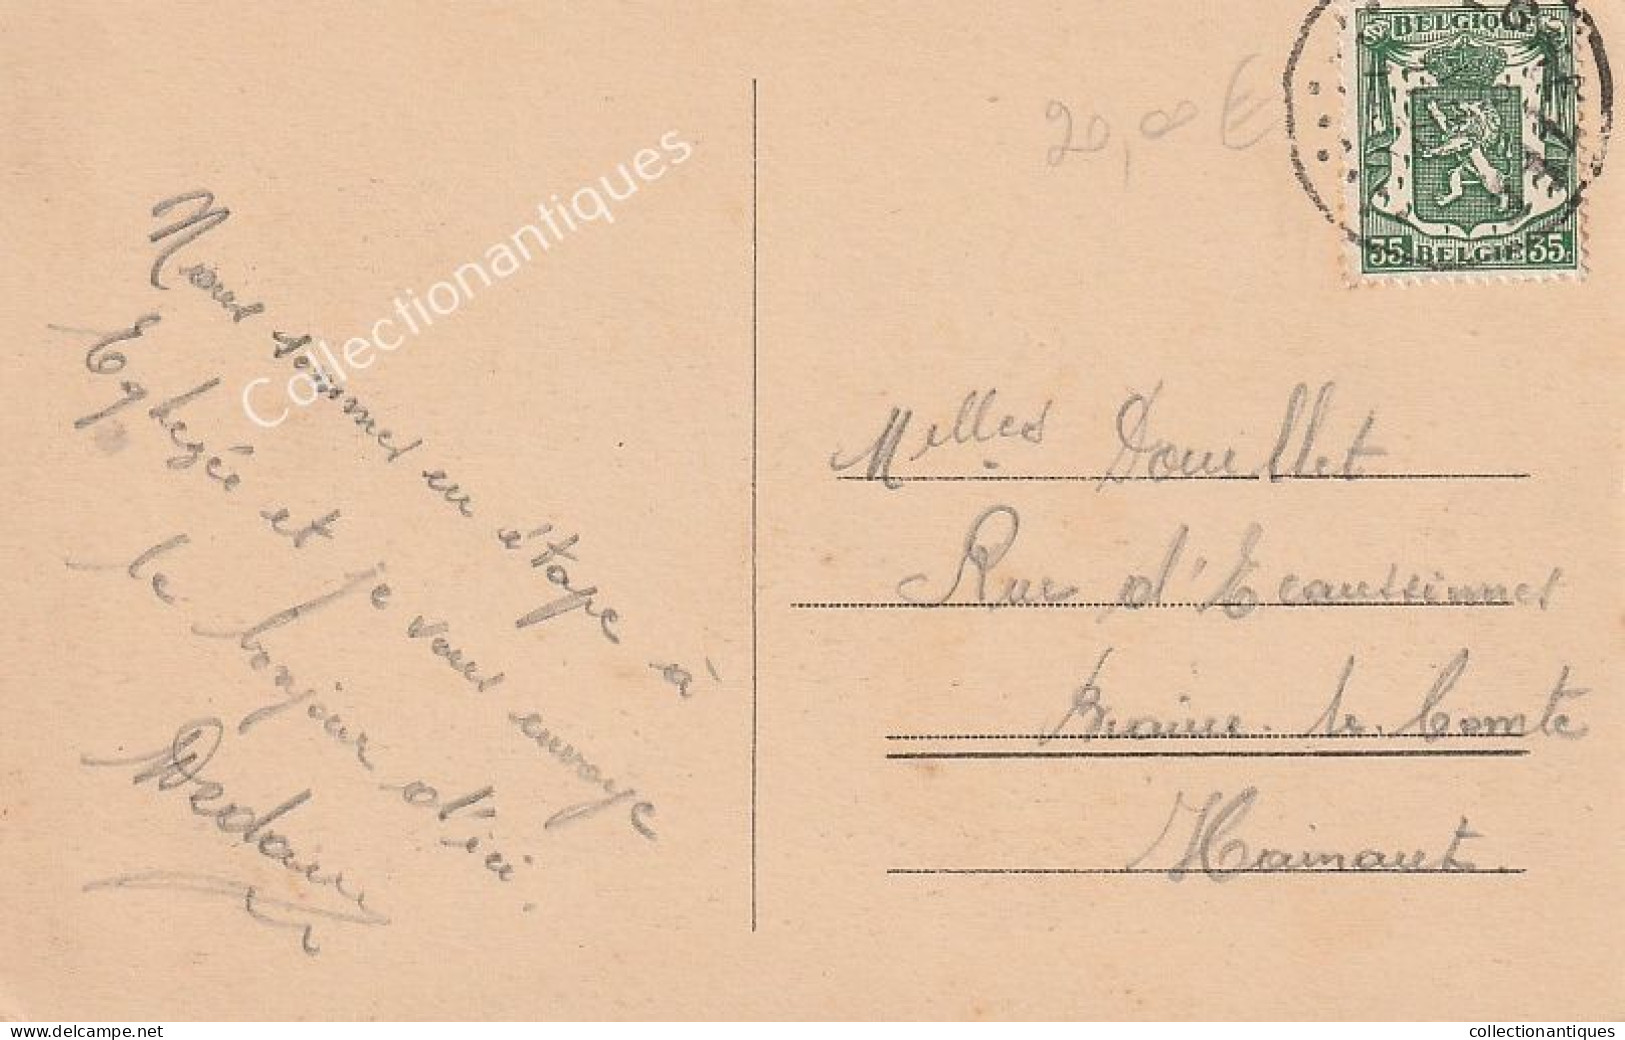 BELGIQUE
35 BELGIE 35
20,00 €
Nous sommes en étape à
Eghezée et je vous envoye
le bonjour d'ici.
Melles Douillet
Rue d'Ecaussinnes
Braine-le-Comte
Hainaut.
Collectionantiques
www.delcampe.net
collectionantiques